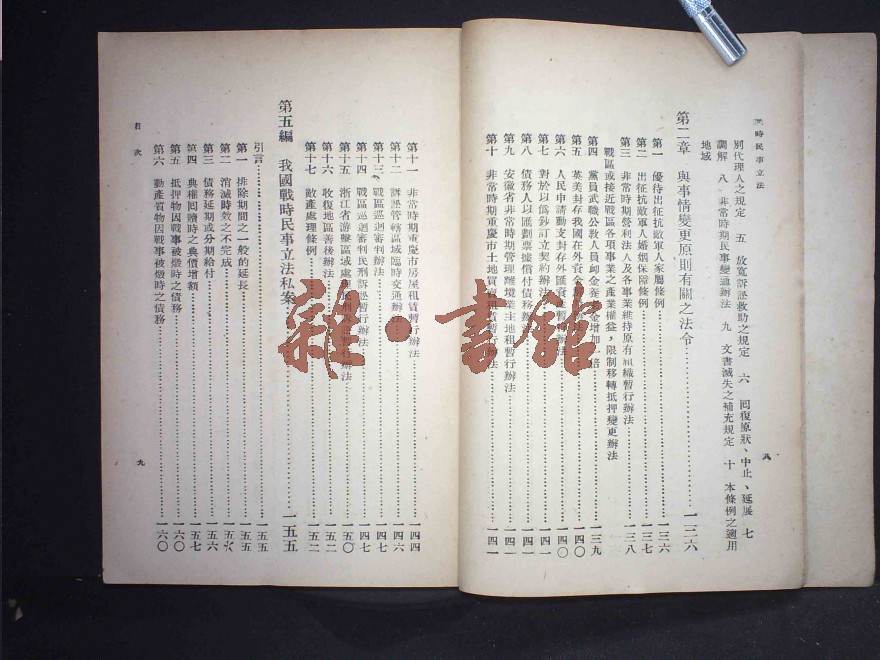 時民事立法
別代理人之規定　五　放寬訴訟救助之規定　六　囘復原狀、中止、延展　七
調解　八　非常時期民事變通辦法　九　文書滅失之補充規定　十　本條例之適用
地域
第二章　與事情變更原則有關之法令…一三六
第一　優待出征抗敵軍人家屬條例…一三六
第二　出征抗敵軍人婚姻保障條例…一三七
第三　非常時期營利法人及各事業維持原有組織暫行辦法…一三八
戰區或接近戰區各項事業之產業權益，限制移轉抵押變更辦法
第四　黨員武職公教人員卹金養金增加一倍…一三九
第五　英美封存我國在外資金法…一四〇
第六　人民申請動支封存外匯資暫行辦法…一四〇
第七　對於以僞鈔訂立契約辦法…一四一
第八　債務人以匯劃票據償付債務辦法…一四一
第九　安徽省非常時期管理離境業主地租暫行辦法…一四一
第十　非常時期重慶市土地買賣租暫行辦法…一四一
八
第十一　非常時期重慶市房屋租賃暫行辦法…一四四
第十二　訴訟管轄區域臨時交通辦法…一四六
第十三　戰區巡迴審判辦法…一四七
第十四　戰區巡迴審判民刑訴訟暫行辦法…一四七
第十五　浙江省游擊區域處理民刑暫行辦法…一五〇
第十六　收復地區善後辦法…一五二
第十七　敵產處理條例…一五二
第五編　我國戰時民事立法私案…一五五
引言…一五五
第一　排除期間之一般的延長…一五五
第二　消滅時效之不完成…一五六
第三　債務延期或分期給付…一五六
第四　典權回贖時之典價增額…一五七
第五　抵押物因戰事被燬時之債務…一六〇
第六　動產質物因戰事被燬時之債務…一六〇
目次
九
雜·書館